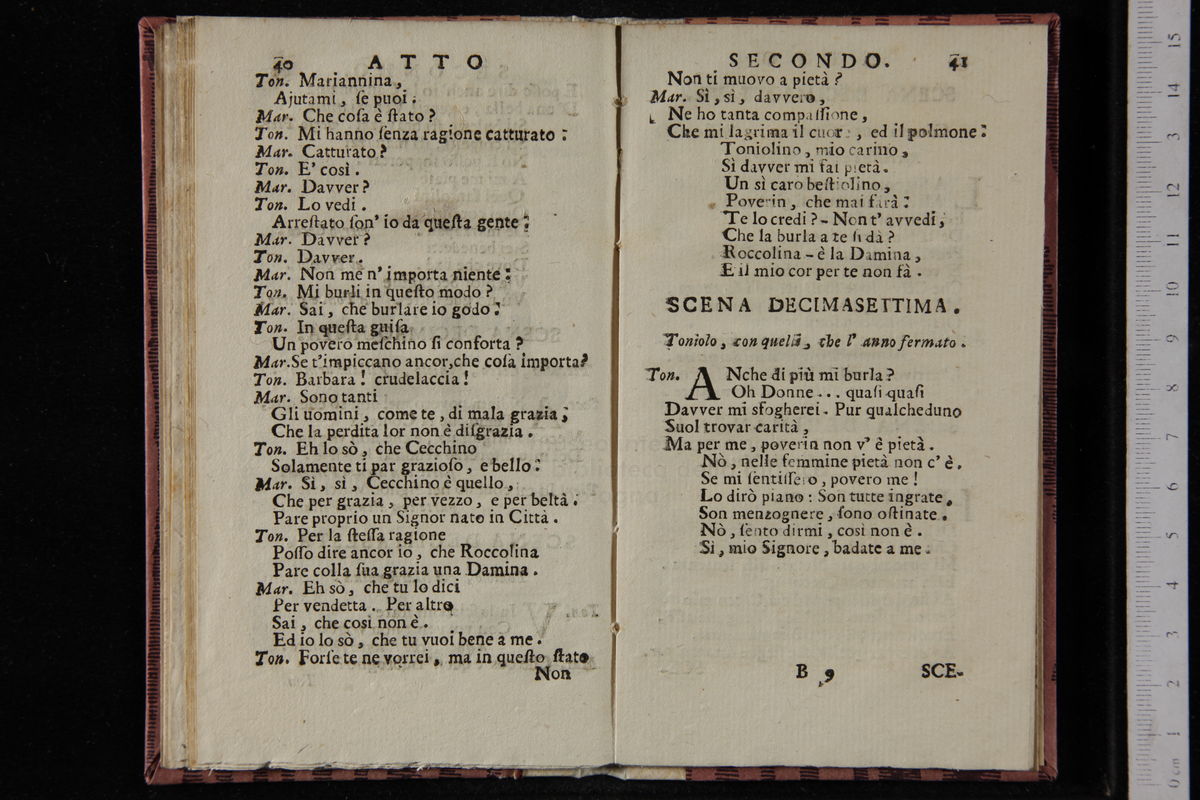 40 ATTO
Ton. Mariannina,
Ajutami, ſe puoi.
Mar. Che coſa è ſtato?
Ton. Mi hanno ſenza ragione catturato:
Mar. Catturato?
Ton. E' così.
Mar. Davver?
Ton. Lo vedi.
Arreſtato ſon' io da queſta gente:
Mar. Davver?
Ton. Davver.
Mar. Non me n' importa niente:
Ton. Mi burli in queſto modo?
Mar. Sai, che burlare io godo:
Ton. In queſta guiſa
Un povero meſchino ſi conforta?
Mar. Se t'impiccano ancor, che coſa importa?
Ton. Barbara! crudelaccia!
Mar. Sono tanti
Gli uomini, come te, di mala grazia;
Che la perdita lor non è diſgrazia.
Ton. Eh lo sò, che Cecchino
Solamente ti par grazioſo, e bello:
Mar. Sì, sì, Cecchino è quello,
Che per grazia, per vezzo, e per beltà.
Pare proprio un Signor nato in Città.
Ton. Per la ſteſſa ragione
Poſſo dire ancor io, che Roccolina
Pare colla ſua grazia una Damina.
Mar. Eh sò, che tu lo dici
Per vendetta. Per altro
Sai, che così non è.
Ed io lo sò, che tu vuoi bene a me.
Ton. Forſe te ne vorrei, ma in queſto ſtato
Non
SECONDO. 41
Non ti muovo a pietà?
Mar. Sì, sì, davvero,
Ne ho tanta compaſſione,
Che mi lagrima il cuore, ed il polmone:
Toniolino, mio carino,
Sì davver mi fai pietà.
Un sì caro beſtiolino,
Poverin, che mai farà:
Te lo credi? - Non t' avvedi,
Che la burla a te ſi dà?
Roccolina - è la Damina,
E il mio cor per te non fà.
SCENA DECIMASETTIMA.
Toniolo, con quelli, che l' anno fermato.
Ton. ANche di più mi burla?
Oh Donne... quaſi quaſi
Davver mi sfogherei. Pur qualcheduno
Suol trovar carità,
Ma per me, poverin non v' è pietà.
Nò, nelle femmine pietà non c' è.
Se mi ſentiſſero, povero me!
Lo dirò piano: Son tutte ingrate,
Son menzognere, ſono oſtinate.
Nò, ſento dirmi, così non è.
Sì, mio Signore, badate a me.
B 9 SCE-